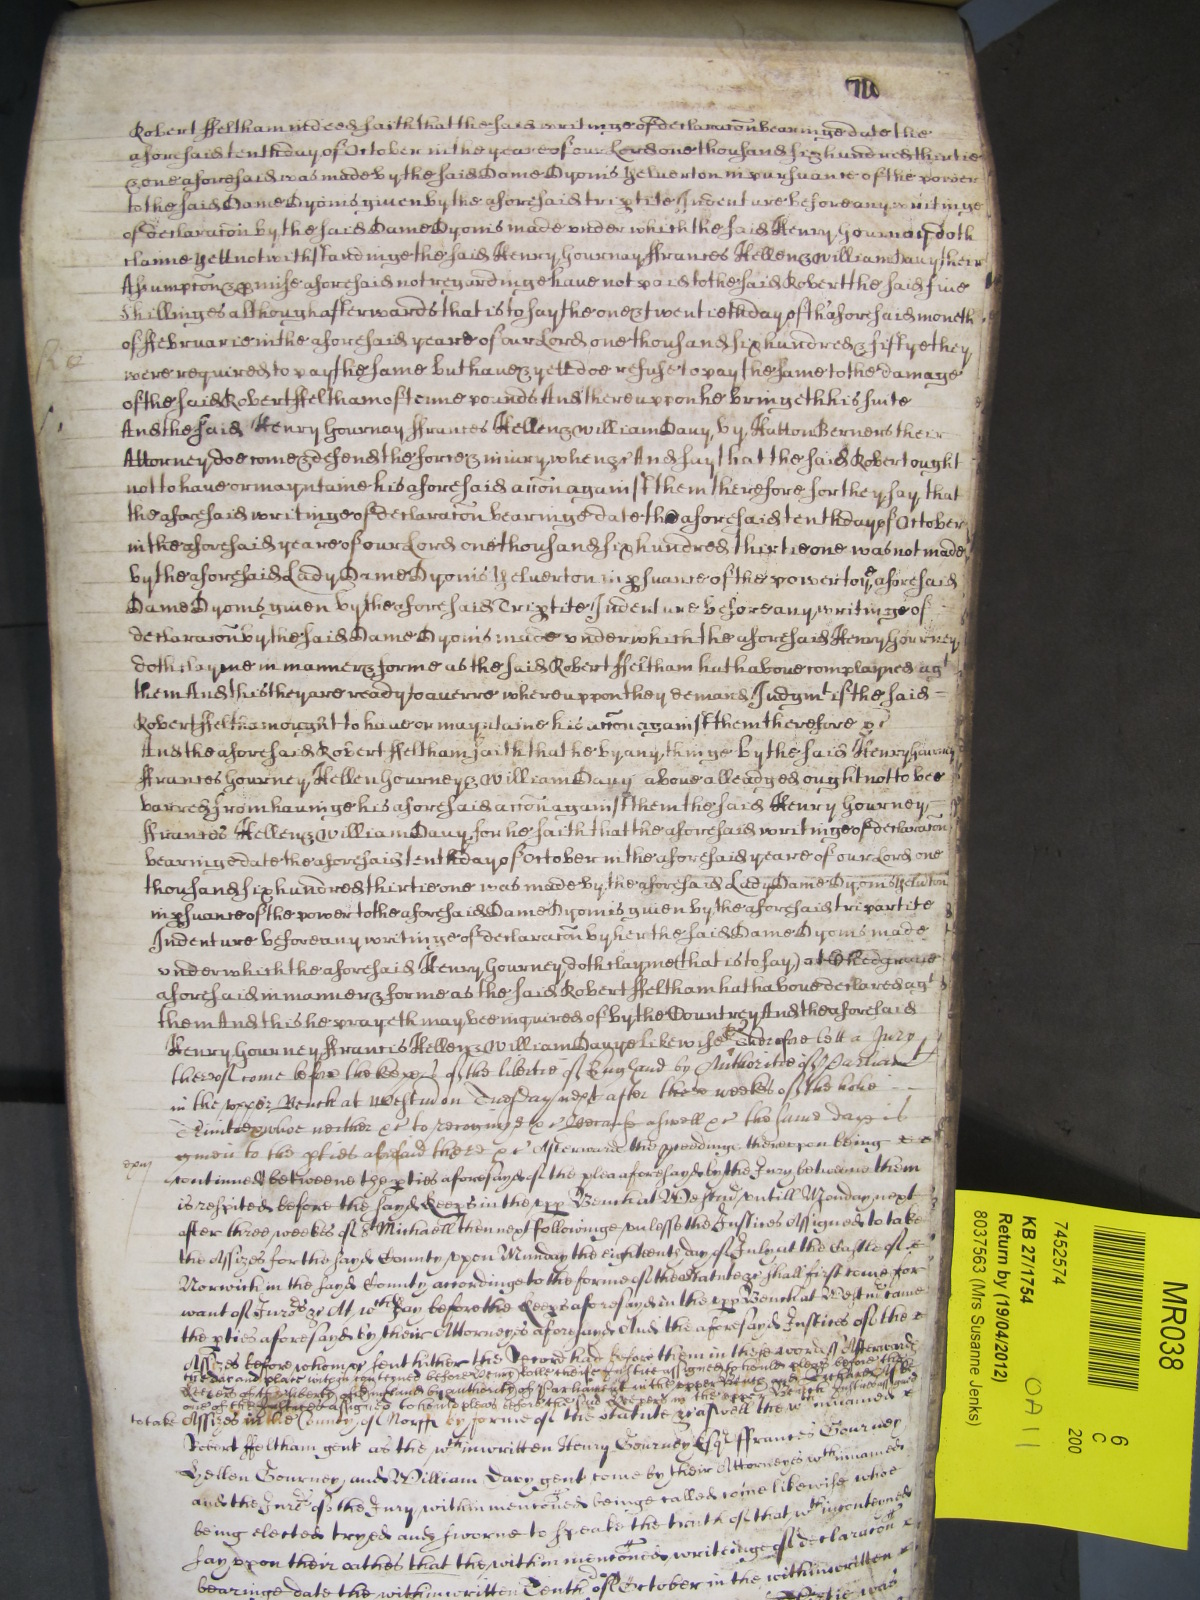 710
Robert ffeltham indeed saith that the said writinge of declaracōn bearinge date the
aforesaid tenth day of October in the yeare of our Lord one thousand six hundred thirtie
& one aforesaid was made by the said Dame Dyonis Yelverton in pursuance of the power
to the said Dame Dyonis given by the aforesaid triptite Indenture before any writinge
of declaracōn by the said Dame Dyonis made vnder which the said Henry Gourney doth
claime yett notwithstandinge the said Henry Gournay ffrances Hellen & William Davy their
Assumptōn & pmise aforesaid not regardinge have not paid to the said Robert the said five
Shillinges although afterwards that is to say the one & twentieth day of th'aforesaid moneth
of ffebruarie in the aforesaid yeare of our Lord one thousand six hundred & fiftye they
were required to pay the same but have & yett doe refuse to pay the same to the damage
of the said Robert ffeltham of tenne pounds And thereuppon he bringeth his suite
And the said Henry Gournay ffrances Hellen & William Davy, by Hutton Berners their
Attorney, doe come & defend the force & iniury when &c And say that the said Robert ought
not to have or mayntaine his aforesaid accōn against them therefore for they say, that
the aforesaid writinge of declaracōn bearinge date the aforesaid tenth day of October
in the aforesaid yeare of our Lord one thousand six hundred thirtie one was not made
by the aforesaid Lady Dame Dyonis Yelverton in psuance of the power to ye aforesaid
Dame Dyonis given by the aforesaid Triptite Indenture before any writinge of
declaracōn by the said Dame Dyonis made vnder which the aforesaid Henry Gourney
doth clayme in manner & forme as the said Robert ffeltham hath above complayned agt
them And this they are ready to averre whereuppon they demand Judgmt if the said
Robert ffeltham ought to have or mayntaine his accōn against them therefore &c
And the aforesaid Robert ffeltham saith that he by any thinge by the said Henry Gourney
ffrances Gourney, Hellen Gourney & William Davy above alleadged ought not to bee
barred from havinge his aforesaid accōn against them the said Henry Gourney,
ffrances Hellen & William Davy, for he saith that the aforesaid writinge of declaracōn
bearinge date the aforesaid tenth day of October in the aforesaid yeare of our Lord one
thousand six hundred thirtie one was made by the aforesaid Lady Dame Dyonis Yelverton
in psuance of the power to the aforesaid Dame Dyonis given by the aforesaid tripartite
Indenture before any writinge of declaracōn by her the said Dame Dyonis made
vnder which the aforesaid Henry Gourney doth clayme (that is to say) at
aforesaid in manner & forme as the said Robert ffeltham hath above declared agt
them And this he prayeth may bee inquired of by the Countrey And the aforesaid
Henry Gourney ffrancis Hellen & William Davye likewise &c Therefore lett a Jury
thereof come before the keepers of the libertie of England by Authoritie of Parliamt
in the vpper Bench at Westm on Tuesday next after three weekes of the holie
Trinitie & whoe neither &c to recognise &c Because aswell &c the same day is
given to the pties aforesaid there &c Afterwards the pceedinge thereupon being
continued betweene the pties aforesayd of the plea aforesayd by the Jury betweene them
is respited before the sayd keeps in the vpp Bench at Westm vntill Monday next
after three weekes of St Michaell then next followinge vnlesse the Justices Assigned to take
the Assizes for the sayd County vpon Munday the eighteenth day of July at the Castle of
Norwich in the sayd County accordinge to the forme of the Statute &c shall first come for
want of Jurors &c At wch day before the keeps aforesayd in the vpp Bench at Westm came
the pties aforesayd by their Attorneyes aforesayd And the aforesayd Justices of the
Assizes before whom &c sent hither the Record had before them in these words Afterwards
the day and place within conteyned before Henry Rolle cheife Justice assigned to hould pleas before the
keepers of the liberty of England by authority of Parliament in the vpper Bench and
one of the Justices assigned to hould pleas before the said keepers in the vpper Bench Justices assigned
to take Assizes in the County of Norff by forme of the Statute &c aswell the wthinnamed
Robert ffeltham gent as the wthinwritten Henry Gourney Esqr ffrances Gourney
Hellen Gourney, and William Davy gent come by their Attorneyes wthinnamed
and the Jurors of the Jury, within mentōned beinge called come likewise whoe
being elected tryed and sworne to speake the truth of that wthin conteyned
say vpon their oathes that the within mentōned writeinge of declaracōn
bearinge date the withinwritten Tenth of October in the withinwritten
MR038
6
C
200
7452574
KB 27/1754
Return by (19/04/2012)
8037563 (Mrs Susanne Jenks)
OA 11